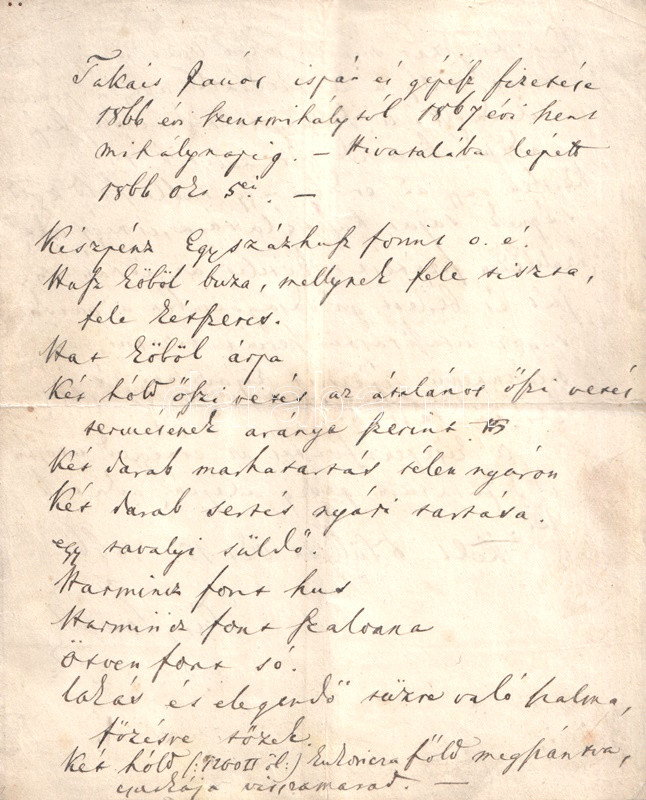 Takáts János ispán és gépész fizetése
1866 évi Szentmihálytól 1867 évi Szent
mihálynapig. – Hivatalába lépett
1866 Okt 5én. –
Készpénz Egyszázhusz forint o. é.
Husz köböl buza, mellynek fele tiszta,
fele kétszeres.
Hat köböl árpa
Két hóld őszi vetés az általános őszi vetés
termésének aránya szerint.
Két darab marhatartás télen nyáron
Két darab sertés nyári tartása.
egy tavalyi süldő.
Harmincz font hus
Harmincz font szalonna
Ötven font só.
lakás és elegendő tüzre való szalma,
főzésre tőzek.
Két hóld (:1200 □ öl:) kukoricza föld megszántva,
csutkája visszamarad. –